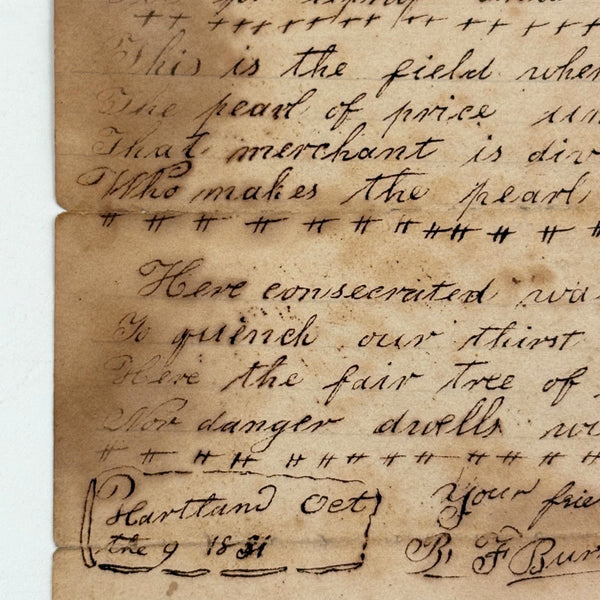 This is the field wher
The pearl of price un
That merchant is div
Who makes the pearl
Here consecrated wa
To quench our thirst
Here the fair tree of
Nor danger dwells wi
Hartland Oct
the 9 1851
Your frie
B F Bur